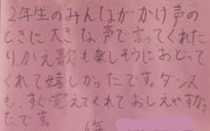 2年生のみんながかけ声の
ときに大きな声で言ってくれた
り、かえ歌も楽しそうにおどって
くれて嬉しかったです。ダンス
も、すぐ覚えてくれておしえやすかっ
たです。
6年